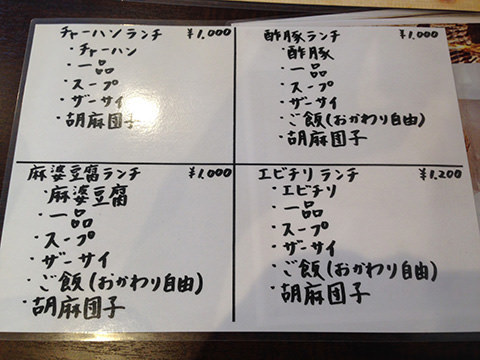 チャーハンランチ ¥1,000
・チャーハン
・一品
・スープ
・ザーサイ
・胡麻団子
酢豚ランチ ¥1,000
・酢豚
・一品
・スープ
・ザーサイ
・ご飯(おかわり自由)
・胡麻団子
麻婆豆腐ランチ ¥1,000
・麻婆豆腐
・一品
・スープ
・ザーサイ
・ご飯(おかわり自由)
・胡麻団子
エビチリランチ ¥1,200
・エビチリ
・一品
・スープ
・ザーサイ
・ご飯(おかわり自由)
・胡麻団子